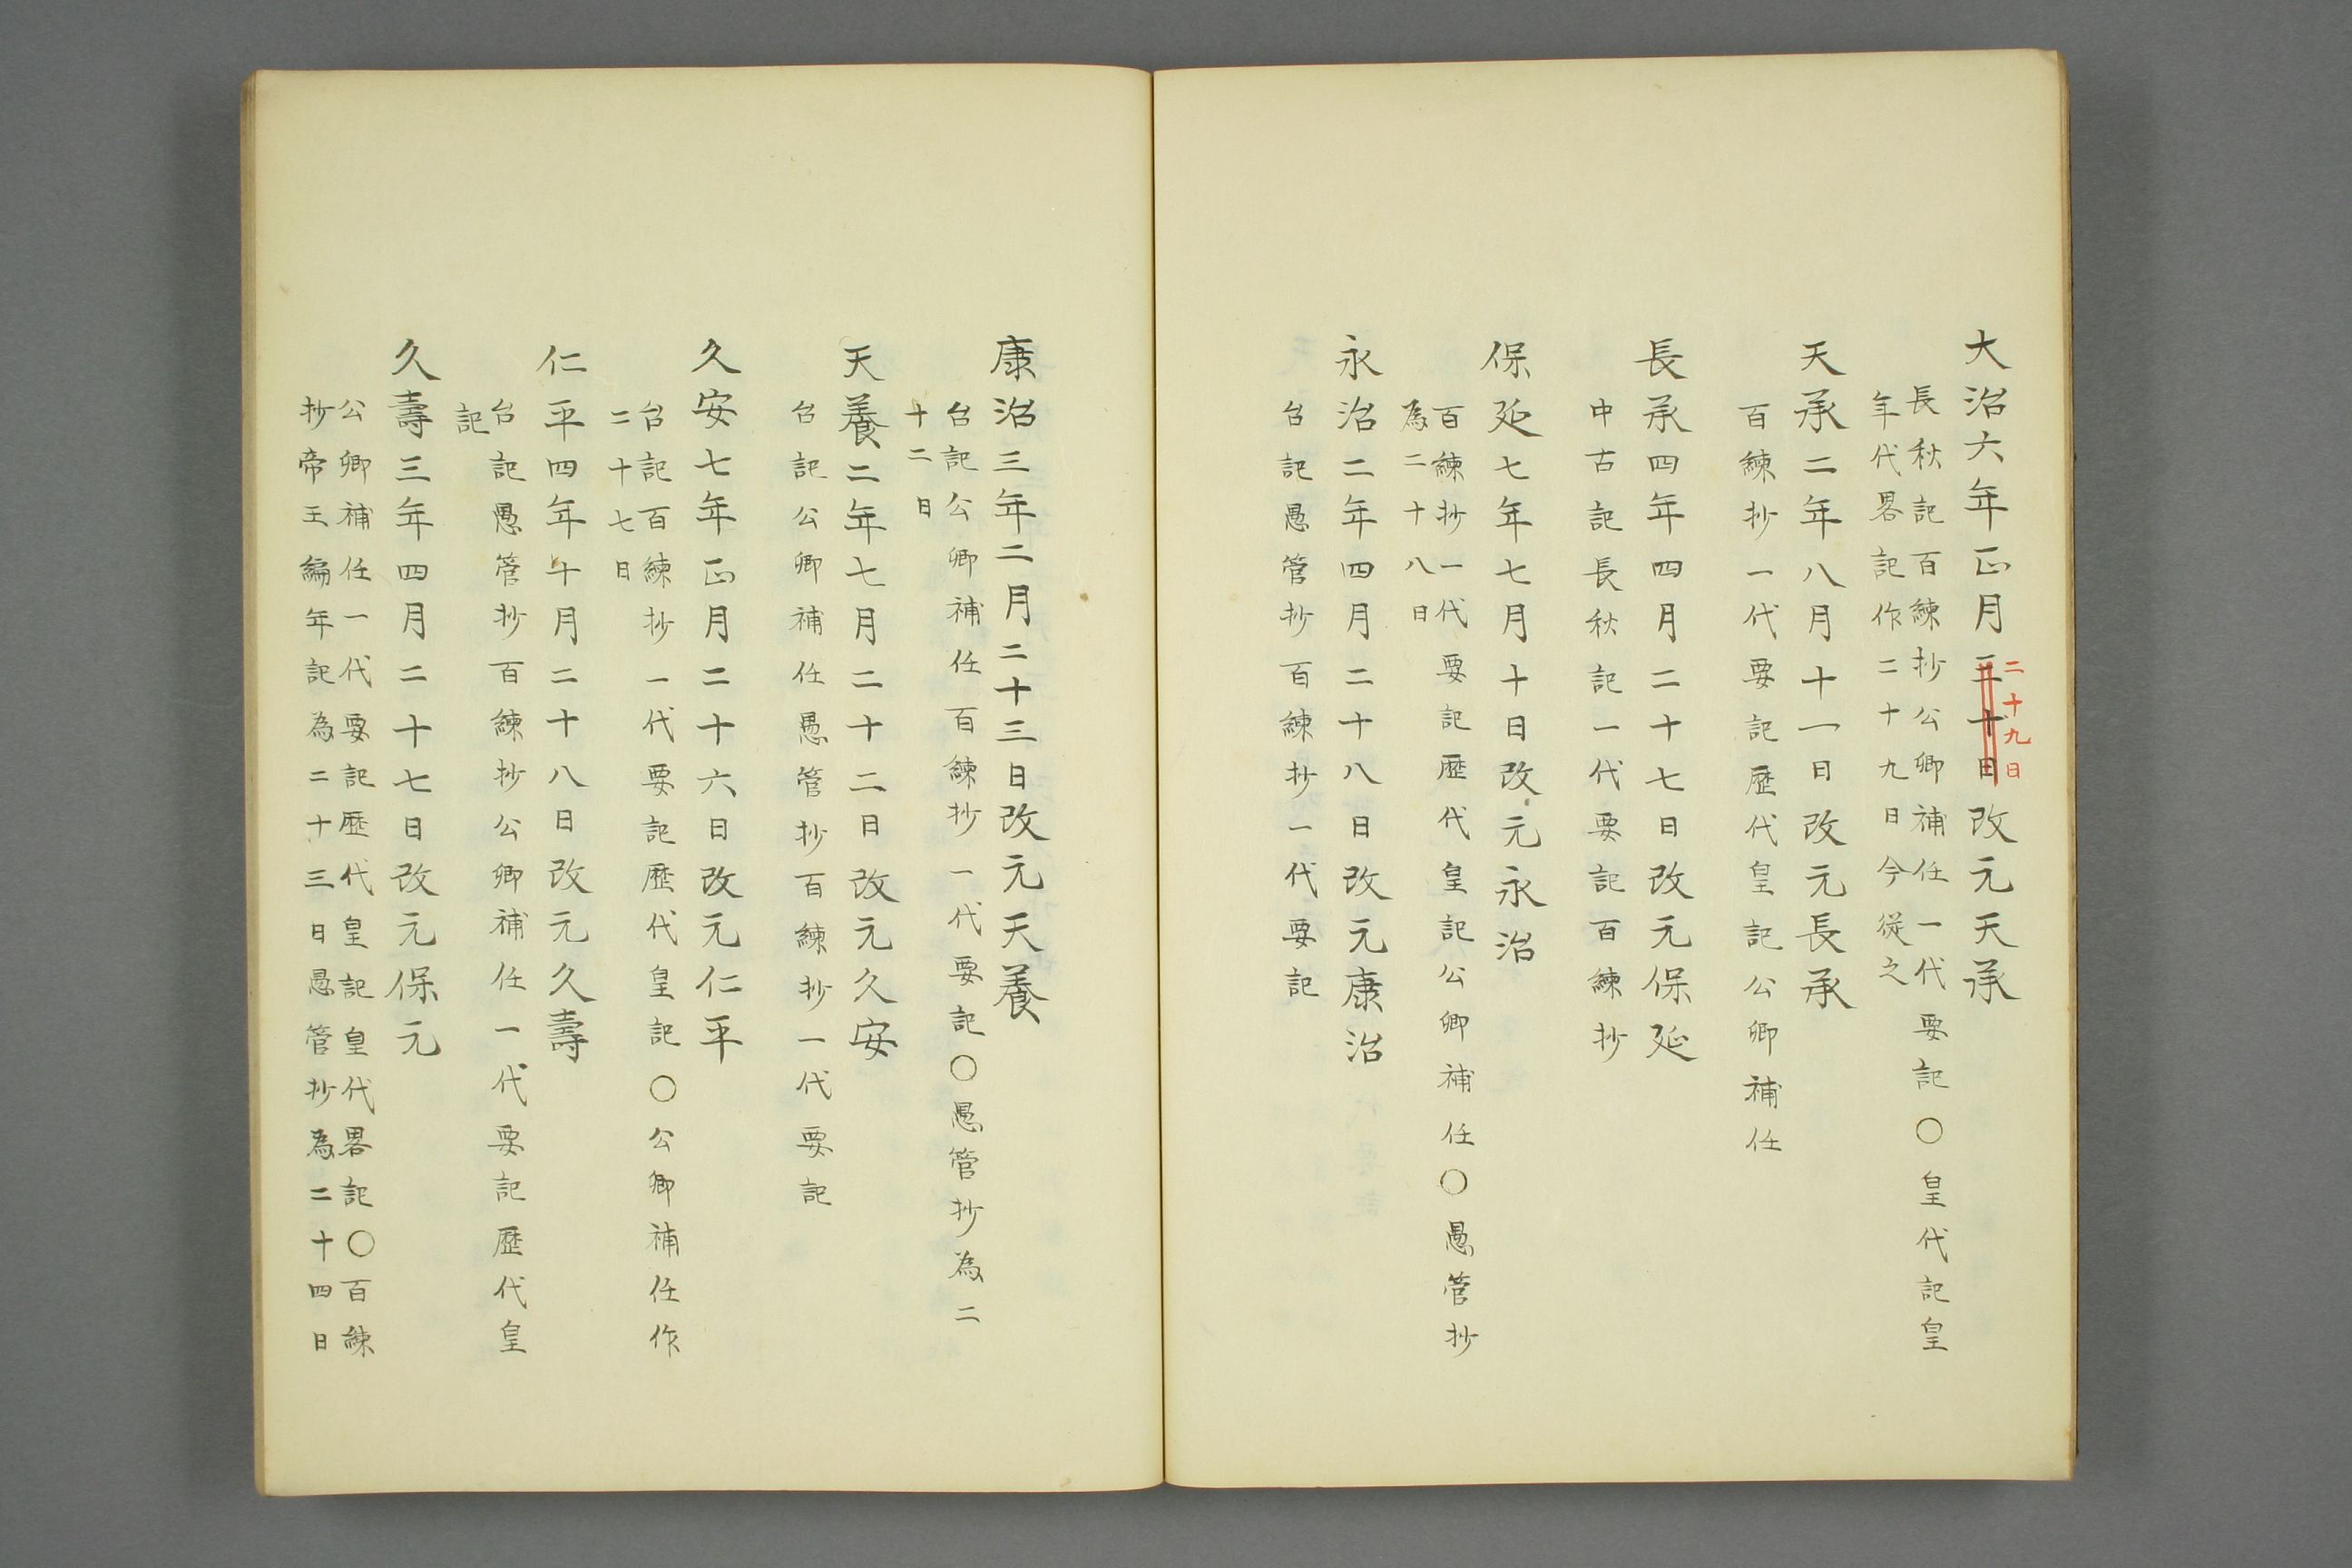 大治六年正月三十日改元天承
二十九日
長秋記百練抄公卿補任一代要記○皇代記皇
年代畧記作二十九日今從之
天承二年八月十一日改元長承
百練抄一代要記歷代皇記公卿補任
長承四年四月二十七日改元保延
中古記長秋記一代要記百練抄
保延七年七月十日改元永治
百練抄一代要記歷代皇記公卿補任○愚管抄
為二十八日
永治二年四月二十八日改元康治
台記愚管抄百練抄一代要記
康治三年二月二十三日改元天養
台記公卿補任百練抄一代要記○愚管抄為二
十二日
天養二年七月二十二日改元久安
台記公卿補任愚管抄百練抄一代要記
久安七年正月二十六日改元仁平
台記百練抄一代要記歷代皇記○公卿補任作
二十七日
仁平四年十月二十八日改元久壽
台記愚管抄百練抄公卿補任一代要記歷代皇
記
久壽三年四月二十七日改元保元
公卿補任一代要記歷代皇記皇代畧記○百練
抄帝王編年記為二十三日愚管抄為二十四日